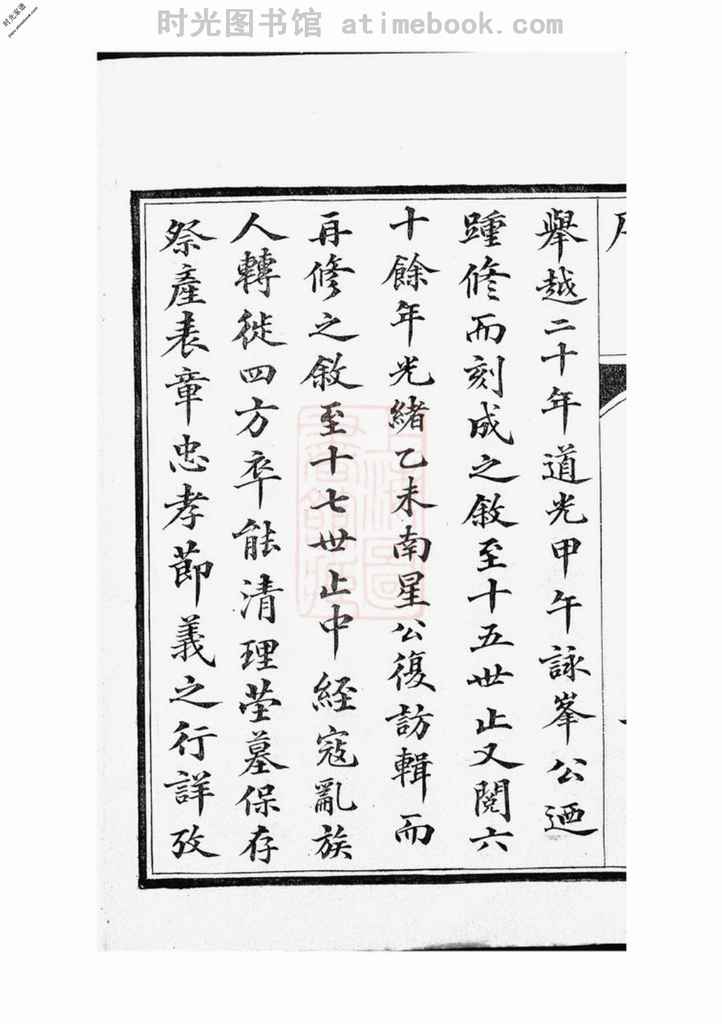 时光图书馆 atimebook.com
时光家谱
www.atimebook.com
舉越二十年道光甲午詠峯公迺
踵修而刻成之敘至十五世止又閱六
十餘年光緒乙未南星公復訪輯而
再修之敘至十七世止中經寇亂族
人轉徙四方卒能清理塋墓保存
祭產表章忠孝節義之行詳攷